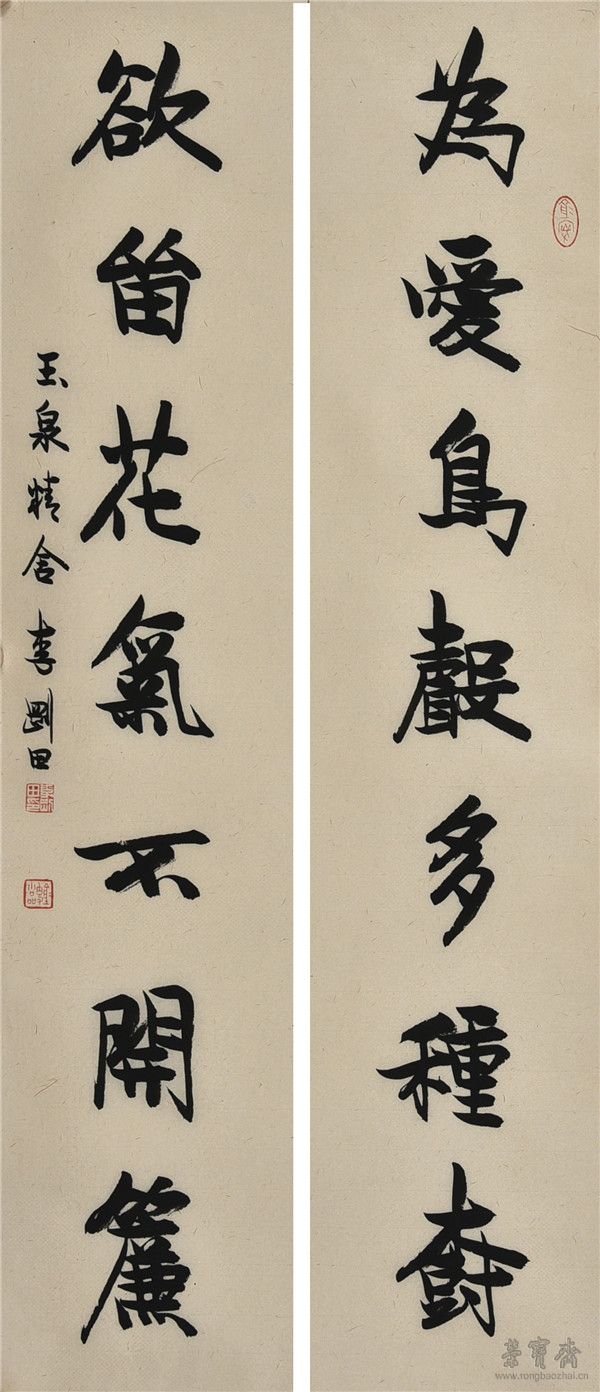 為愛鳥聲多種樹
欲留花氣不開簾
玉泉精舍 李剛田
榮寶齋
www.rongbaozhai.cn